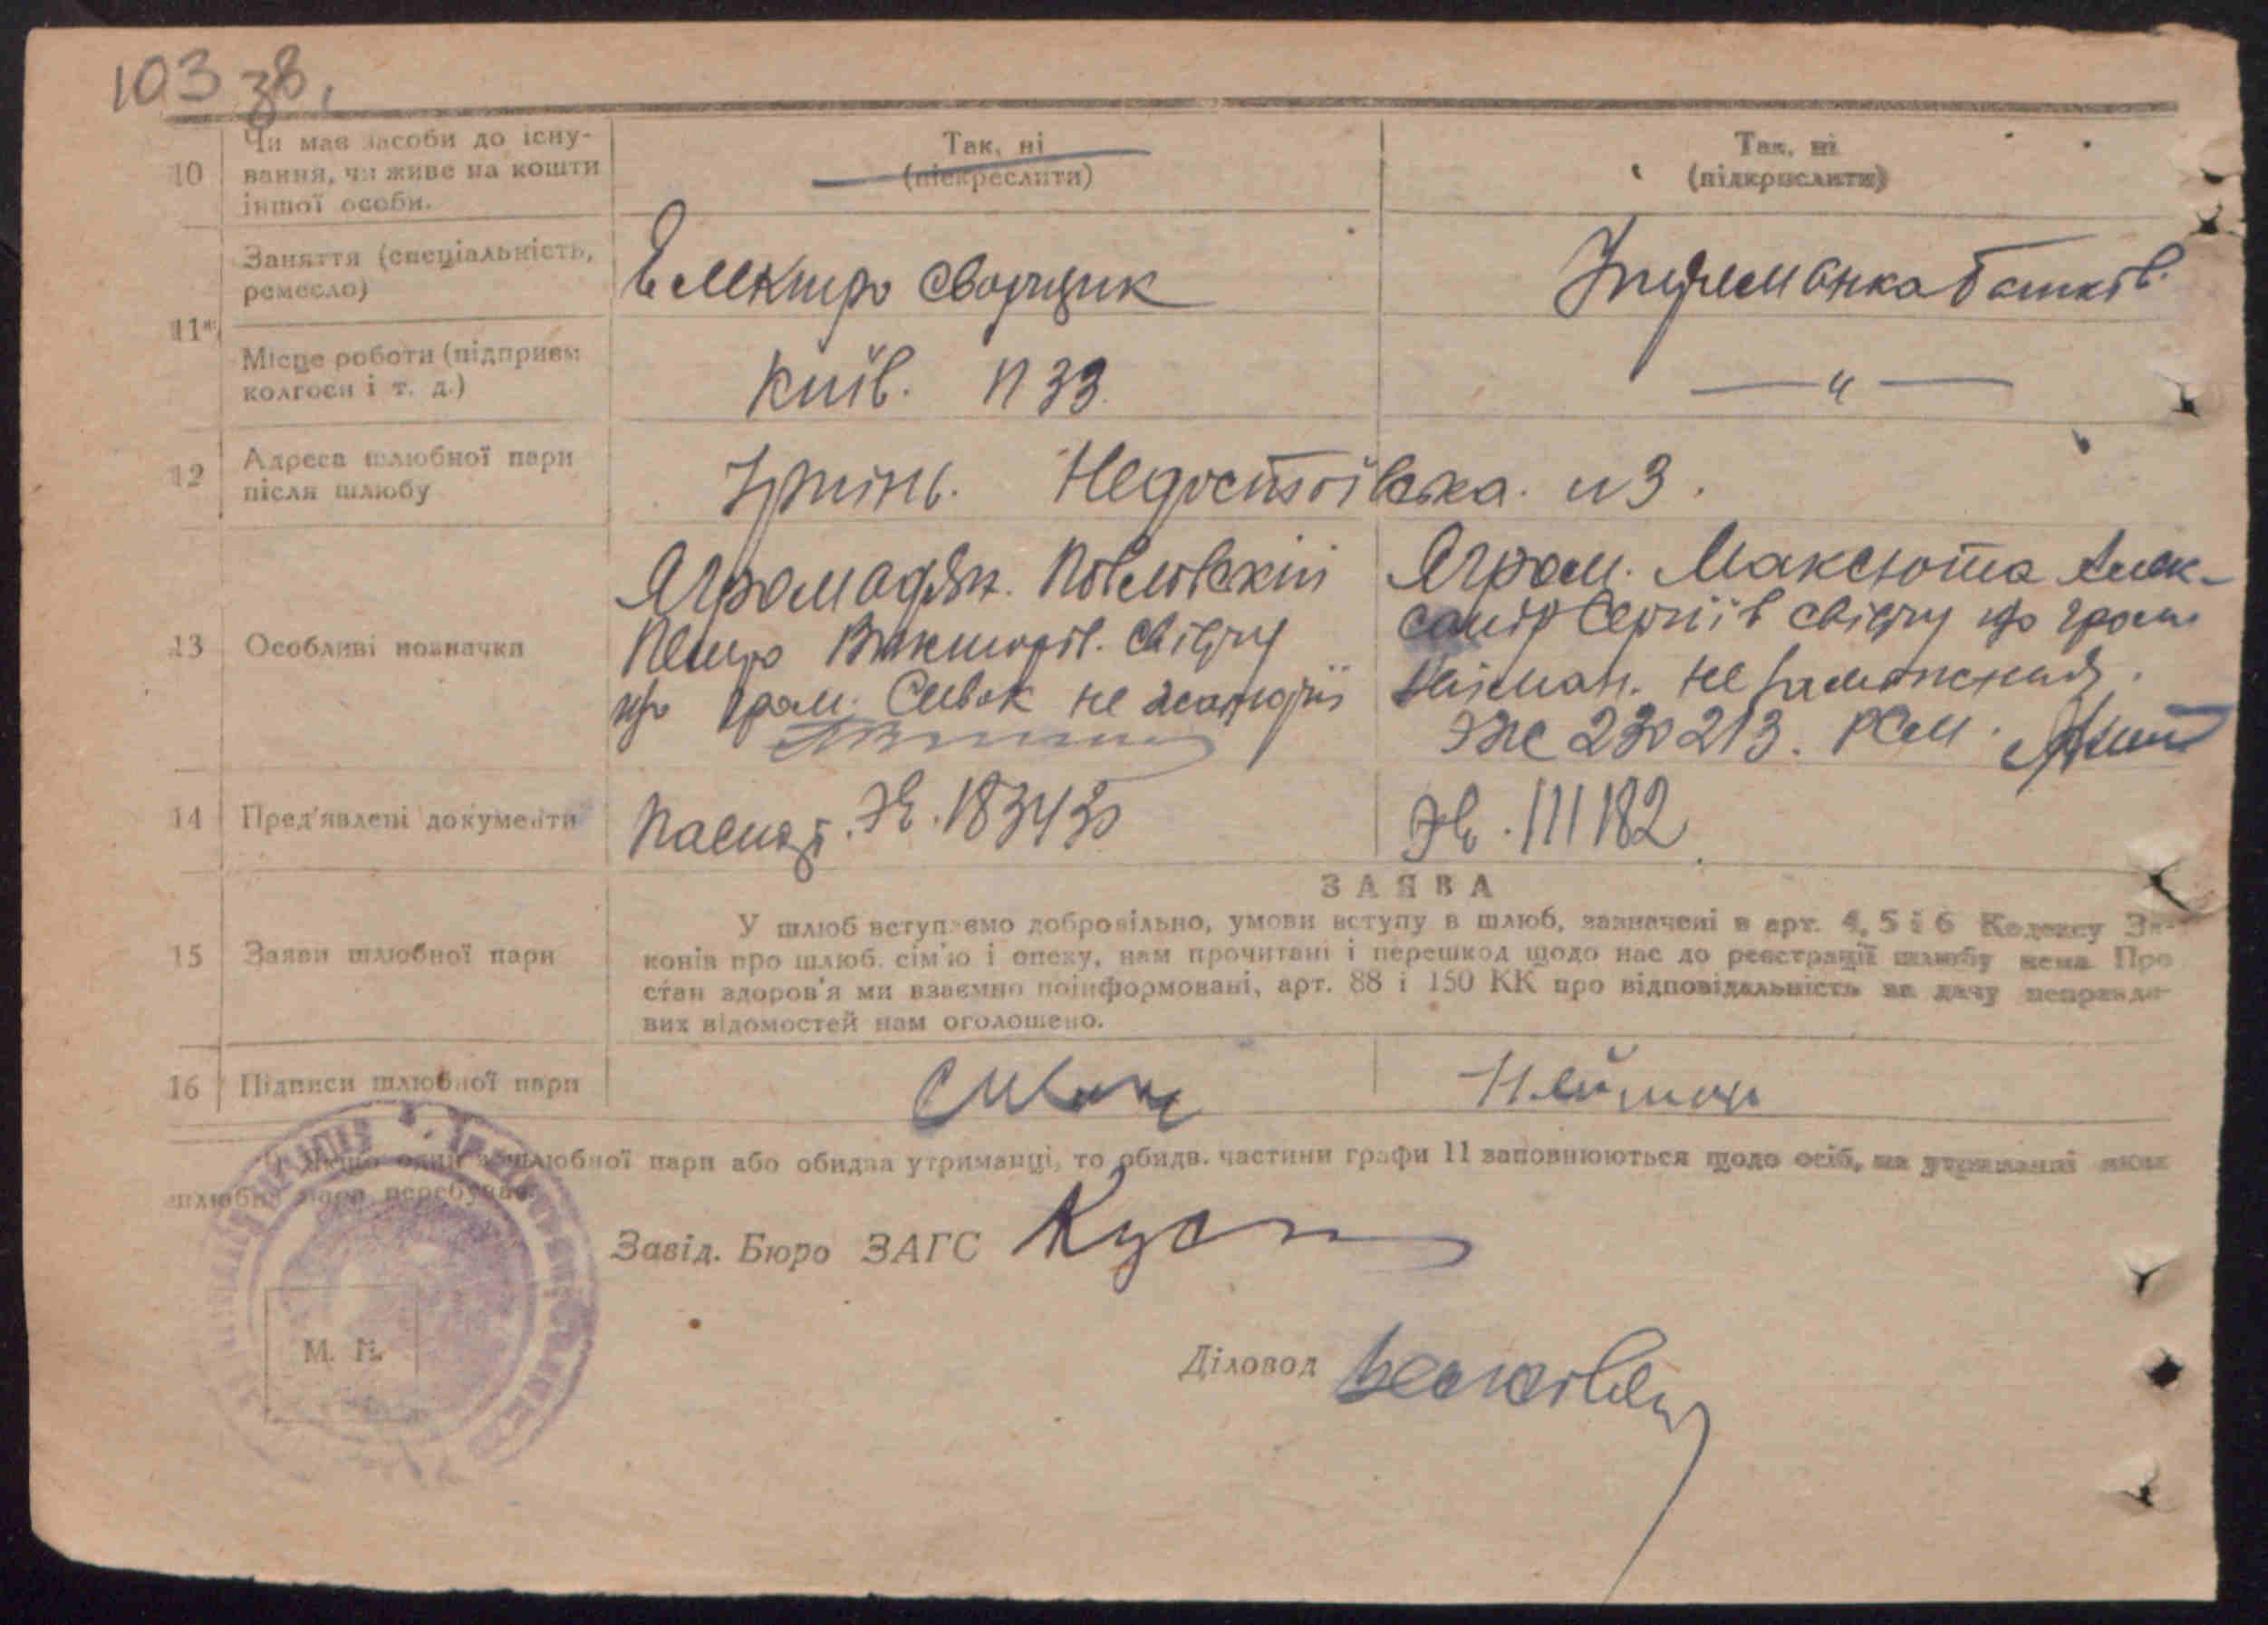 103 зв.
10 Чи має засоби до існу-
вання, чи живе на кошти
іншої особи.
Так, ні
(підкреслити)
Так, ні
(підкреслити)
11
Заняття (спеціальність,
ремесло)
Електро сварщик
Утриманка батьків.
Місце роботи (підприєм
колгосп і т. д.)
Київ. п 33.
— " —
12 Адреса шлюбної пари
після шлюбу
Ірпінь. №3.
13 Особливі позначки
Я громадян.
Петро Вікторов. свідчу
про гром. Сивак не
Я гром. Максюта Алек-
сандр Сергіїв свідчу про гром
Нейман. не замужня.
230213.
14 Пред'явлені документи
Паспорт. 183430
111182
15 Заяви шлюбної пари
ЗАЯВА
У шлюб вступаємо добровільно, умови вступу в шлюб, зазначені в арт. 4, 5 і 6 Кодексу За-
конів про шлюб. сім'ю і опеку, нам прочитані і перешкод щодо нас до реєстрації шлюбу нема. Про
стан здоров'я ми взаємно поінформовані, арт. 88 і 150 КК про відповідальність за дачу неправди-
вих відомостей нам оголошено.
16 Підписи шлюбної пари
Сивак
Нейман
Якщо один з шлюбної пари або обидва утриманці, то обидв. частини графи 11 заповнюються щодо осіб, на утриманні яких
шлюбна пара перебуває.
Завід. Бюро ЗАГС
М. П.
Діловод